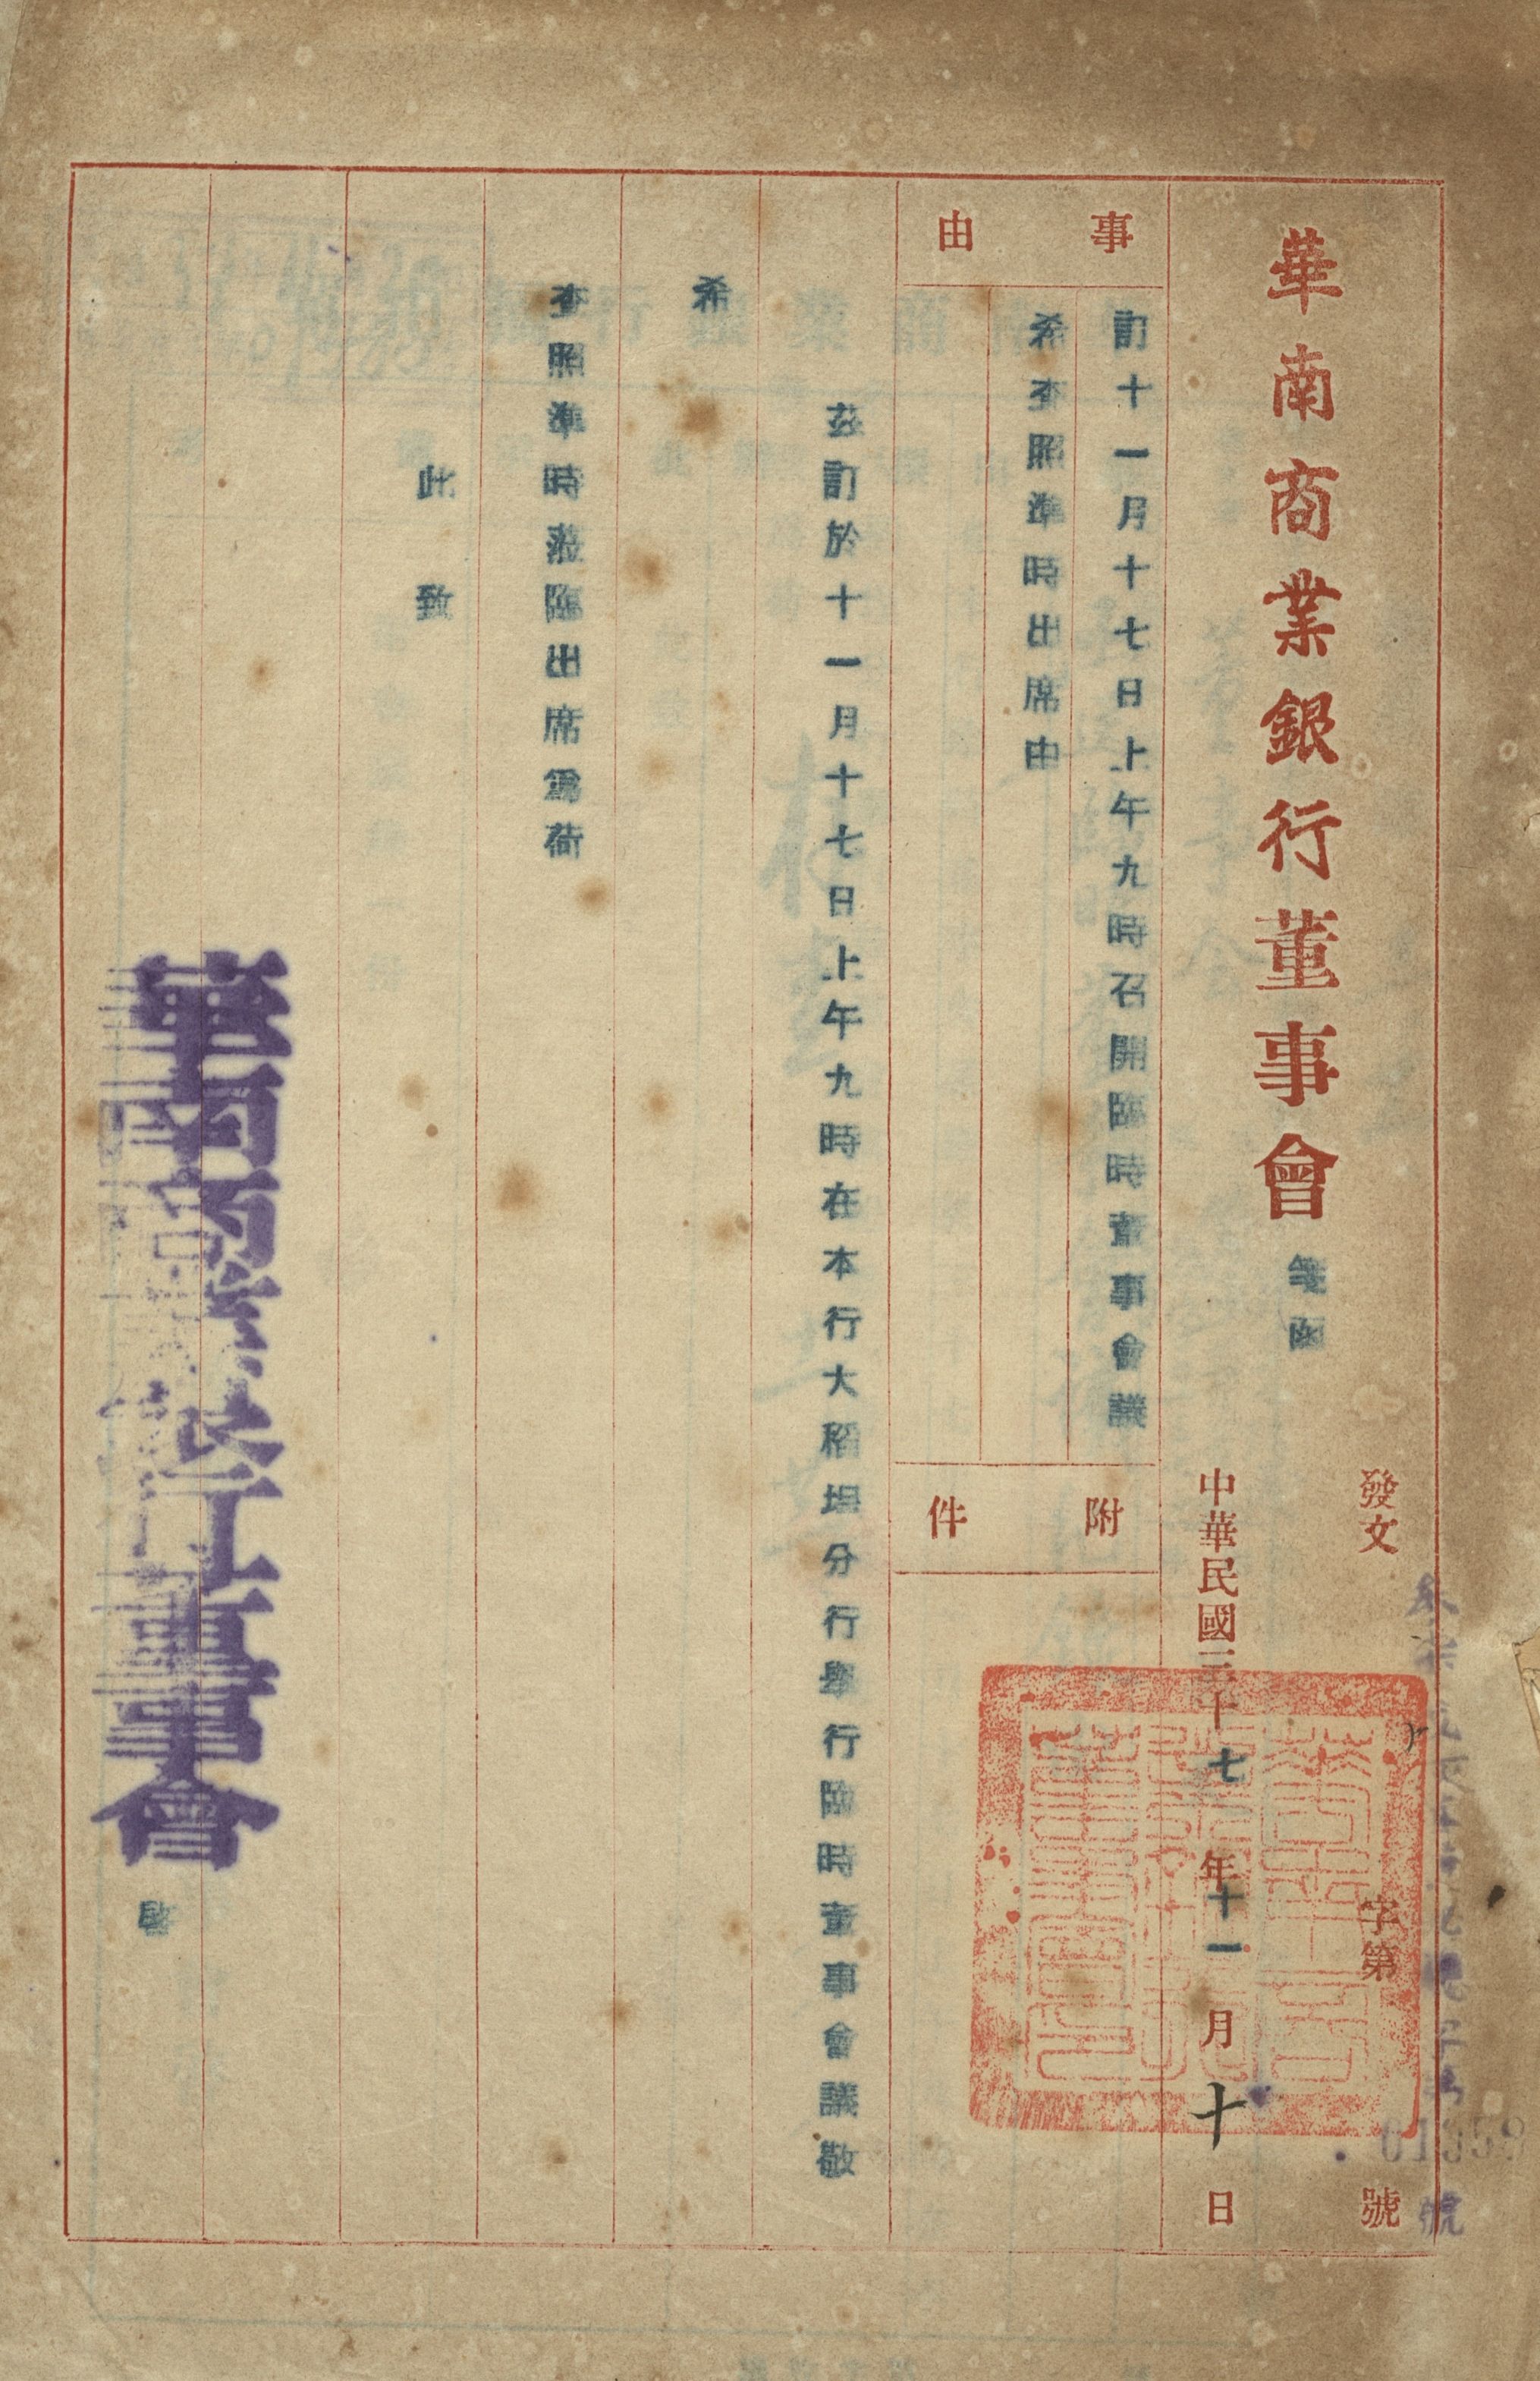 華南商業銀行董事會 箋函
發文 字第 號
中華民國三十七年十一月十日
事由
訂十一月十七日上午九時召開臨時董事會議
希查照準時出席由
附件
茲訂於十一月十七日上午九時在本行大稻埕分行舉行臨時董事會議敬
希
查照準時蒞臨出席爲荷
此致
華南商業銀行董事會 啟